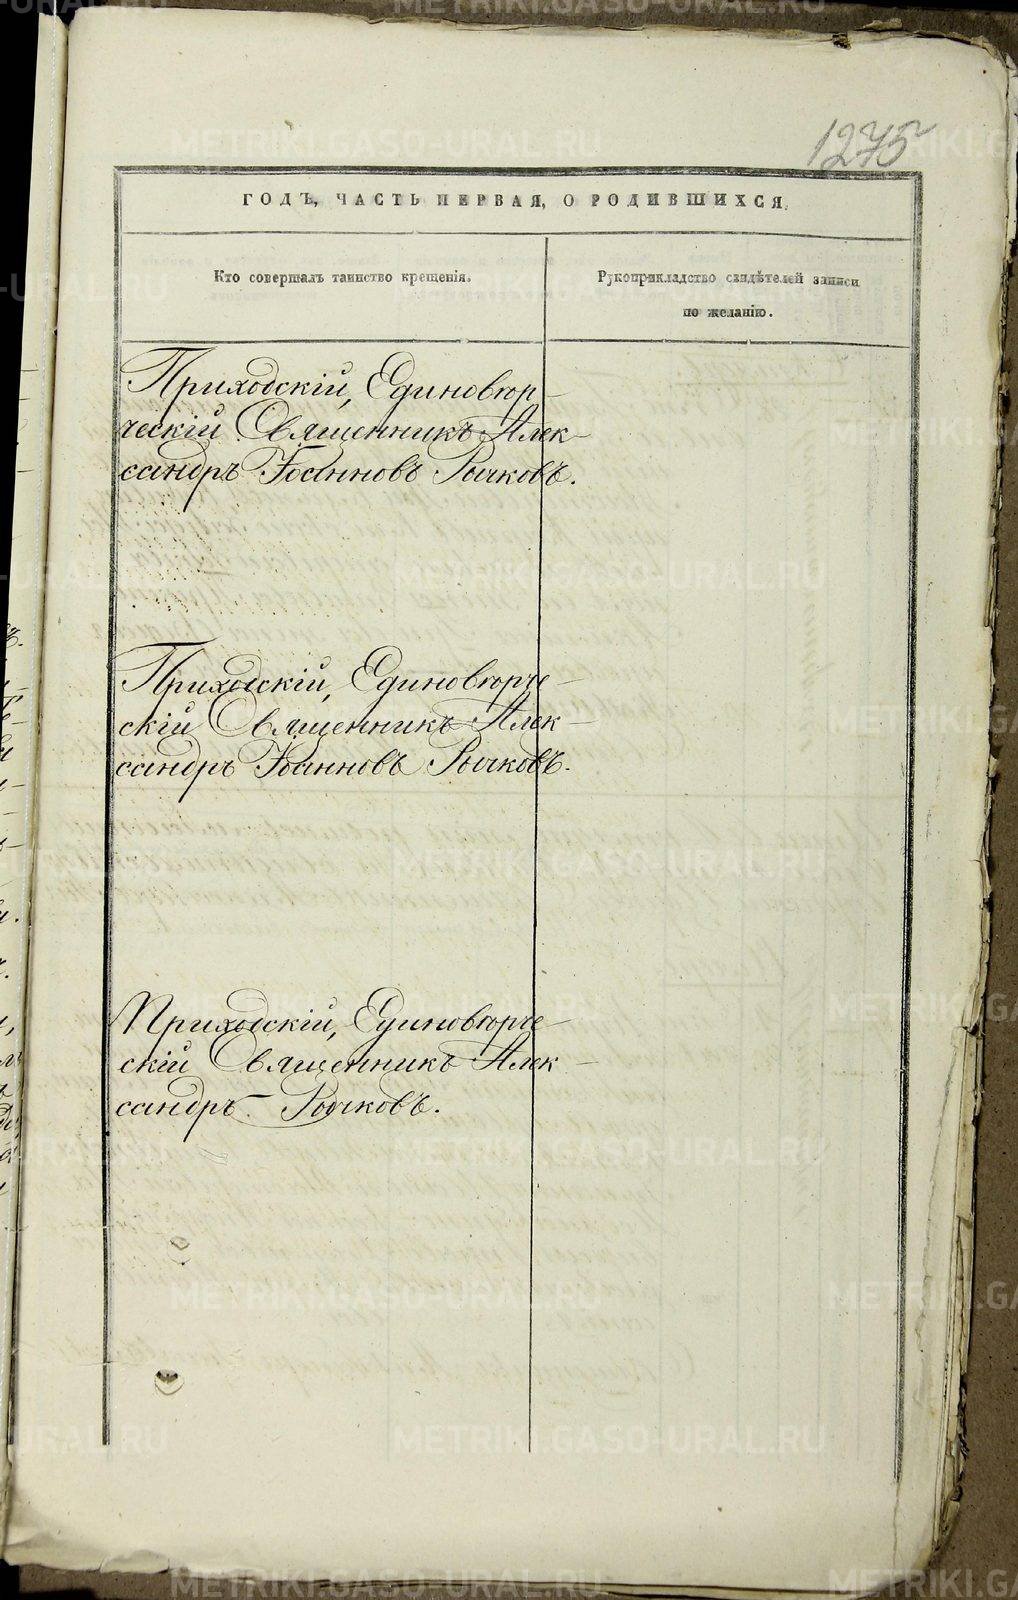 1275
ГОДЪ, ЧАСТЬ ПЕРВАЯ, О РОДИВШИХСЯ.
Кто совершалъ таинство крещенія.
Рукоприкладство свидѣтелей записи
по желанію.
Приходскій, Единовѣр-
ческій Священникъ Алек-
сандръ Іоанновъ Рычковъ.
Приходскій, Единовѣрче-
скій Священникъ Алек-
сандръ Іоанновъ Рычковъ.
Приходскій, Единовѣрче-
скій Священникъ Алек-
сандръ Рычковъ.
METRIKI.GASO-URAL.RU